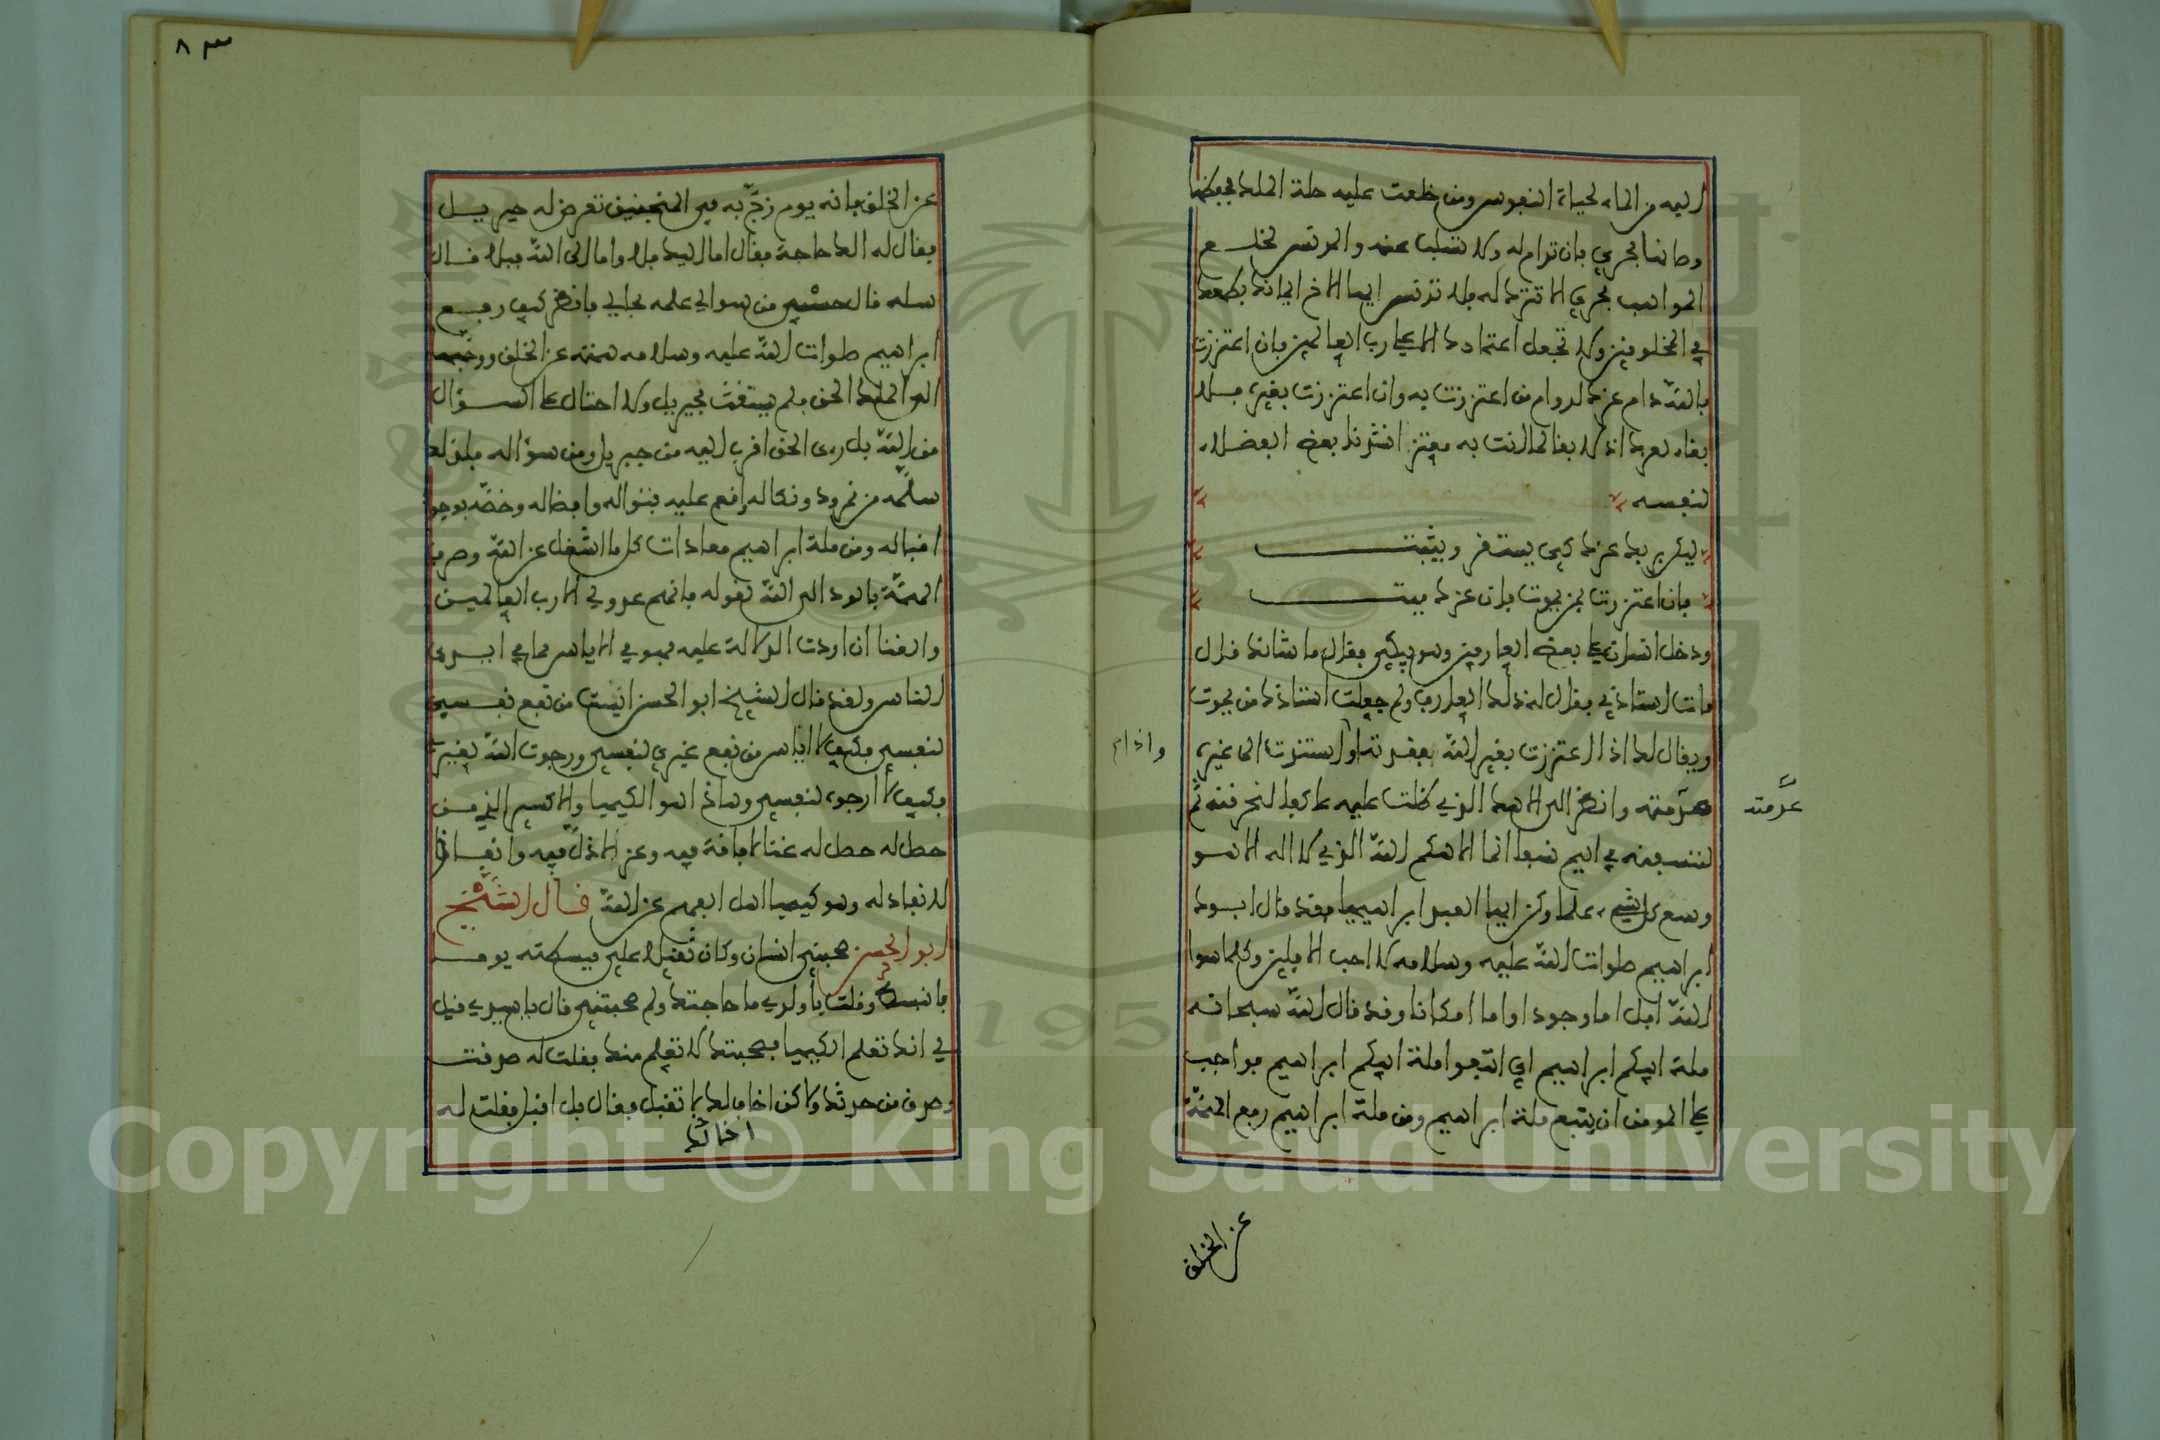 اليه من الماء لحياة النفوس ومن خلعت عليه خلة الملك فيحفظها
وصانها فحري بان تدام له ولا تسلب عنه والمدنس لخلع
المواهب فحري الا تترك له فلا تدنس ايها الاخ ايمانك بطمعك
في المخلوقين ولا تجعل اعتمادك الا على رب العالمين فان اعتززت
بالله دام عزك لدوام من اعتززت به وان اعتززت بغيره فلا
بقاء لعزك اذ لا بقاء لمن انت به معتز انشدنا بعض الفضلاء
لنفسه
ليكن بربك عزك كي يستقر ويثبت
فان اعتززت بمن يموت فان عزك ميت
ودخل انسان على بعض العارفين وهو يبكي فقال ما شانك قال
مات استاذي فقال له ذلك العارف ولم جعلت استاذك من يموت
ويقال لك اذا اعتززت بغير الله ففقدته او استندت الى غيره
عدمته وانظر الى الاهك الذي ظلت عليه عاكفا لنحرقنه ثم
لننسفنه في اليم نسفا انما الاهكم الله الذي لا اله الا هو
وسع كل شيء علما وكن ايها العبد ابراهيميا فقد قال ابوك
ابراهيم صلوات الله عليه وسلامه لا احب الافلين وكل ما سوا
الله افل اما وجودا واما امكانا وقد قال الله سبحانه
ملة ابيكم ابراهيم اي اتبعوا ملة ابيكم ابراهيم فواجب
على المومن ان يتبع ملة ابراهيم ومن ملة ابراهيم رفع الهمة
واذام
عدمته
عن الخلق
٨٣
عن الخلق فانه يوم زج به في المنجنيق تعرض له جبريل
فقال له الك حاجة فقال اما اليك فلا واما الى الله فبلا قال
سله قال حسبي من سوالي علمه بحالي فانظر كيف رفع
ابراهيم صلوات الله عليه وسلامه همته عن الخلق ووجهها
الى الملك الحق فلم يستغث بجبريل ولا احتال على السؤال
من الله بل رءى الحق اقرب اليه من جبريل ومن سؤاله فلذلك
سلمه من نمرود ونكاله وانعم عليه بنواله وافضاله وخصه بوجود
اقباله ومن ملة ابراهيم معادات كل ما اشغل عن الله وصرف
الهمة بالود الى الله لقوله فانهم عدو لي الا رب العالمين
والغنا ان اردت الدلالة عليه فهو في الاياس مما في ايدي
الناس ولقد قال الشيخ ابو الحسن ايست من نفع نفسي
لنفسي فكيف لا اياس من نفع غيري لنفسي ورجوت الله لغيري
فكيف لا ارجوه لنفسي وهاذا هو الكيميا والاكسير الذي من
حصل له حصل له غنا لا فاقة فيه وعز لا ذل فيه وانفاق
لا نفاد له وهو كيميا اهل الفهم عن الله قال الشيخ
ابو الحسن صحبني انسان وكان ثقيلا علي فبسطته يوما
فانبسط وقلت يا ولدي ما حاجتك ولم صحبتني قال يا سيدي قيل
لي انك تعلم الكيميا فصحبتك لا تعلم منك فقلت له صدقت
وصدق من حدثك ولاكن اخالك لا تقبل فقال بل اقبل فقلت له
اخالك